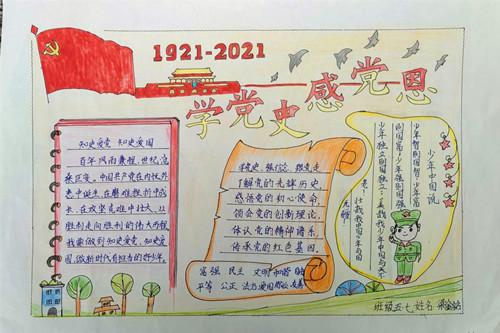 1921-2021
学党史感党恩
知史爱党 知史爱国
百年风雨兼程，世纪沧
桑巨变。中国共产党在内忧外
患中诞生，在磨难挫折中成
长，在攻坚克难中壮大，从
胜利走向胜利的伟大历程
我要做到知史爱党、知史爱
国，做新时代有担当的好少年。
学党史、强信念、跟党走
了解党的光辉历史
感悟党的初心使命
领会党的创新理论
体认党的精神谱系
传承党的红色基因
富强 民主 文明 和谐 自由
平等 公正 法治 爱国 敬业 友善
少年中国说
少年智则国智，少年富
则国富，少年强则国强，
少年独立则国独立。美哉我少年中国与天不
老，壮哉我中国少年与国
无疆！
班级五.七 姓名